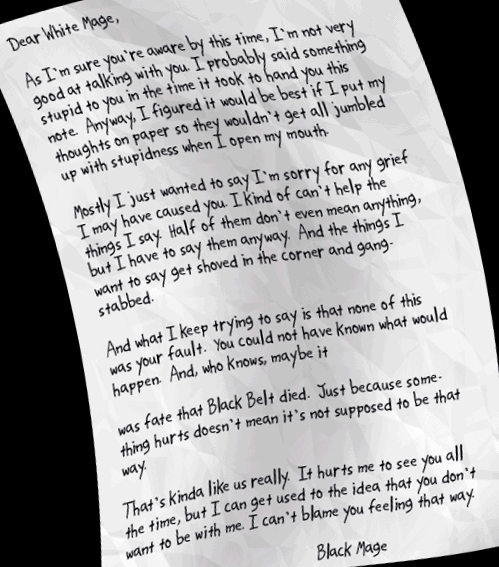 Dear White Mage,
As I'm sure you're aware by this time, I'm not very
good at talking with you. I probably said something
stupid to you in the time it took to hand you this
note. Anyway, I figured it would be best if I put my
thoughts on paper so they wouldn't get all jumbled
up with stupidness when I open my mouth.
Mostly I just wanted to say I'm sorry for any grief
I may have caused you. I kind of can't help the
things I say. Half of them don't even mean anything,
but I have to say them anyway. And the things I
want to say get shoved in the corner and gang-
stabbed.
And what I keep trying to say is that none of this
was your fault. You could not have known what would
happen. And, who knows, maybe it
was fate that Black Belt died. Just because some-
thing hurts doesn't mean it's not supposed to be that
way.
That's kinda like us really. It hurts me to see you all
the time, but I can get used to the idea that you don't
want to be with me. I can't blame you feeling that way.
Black Mage